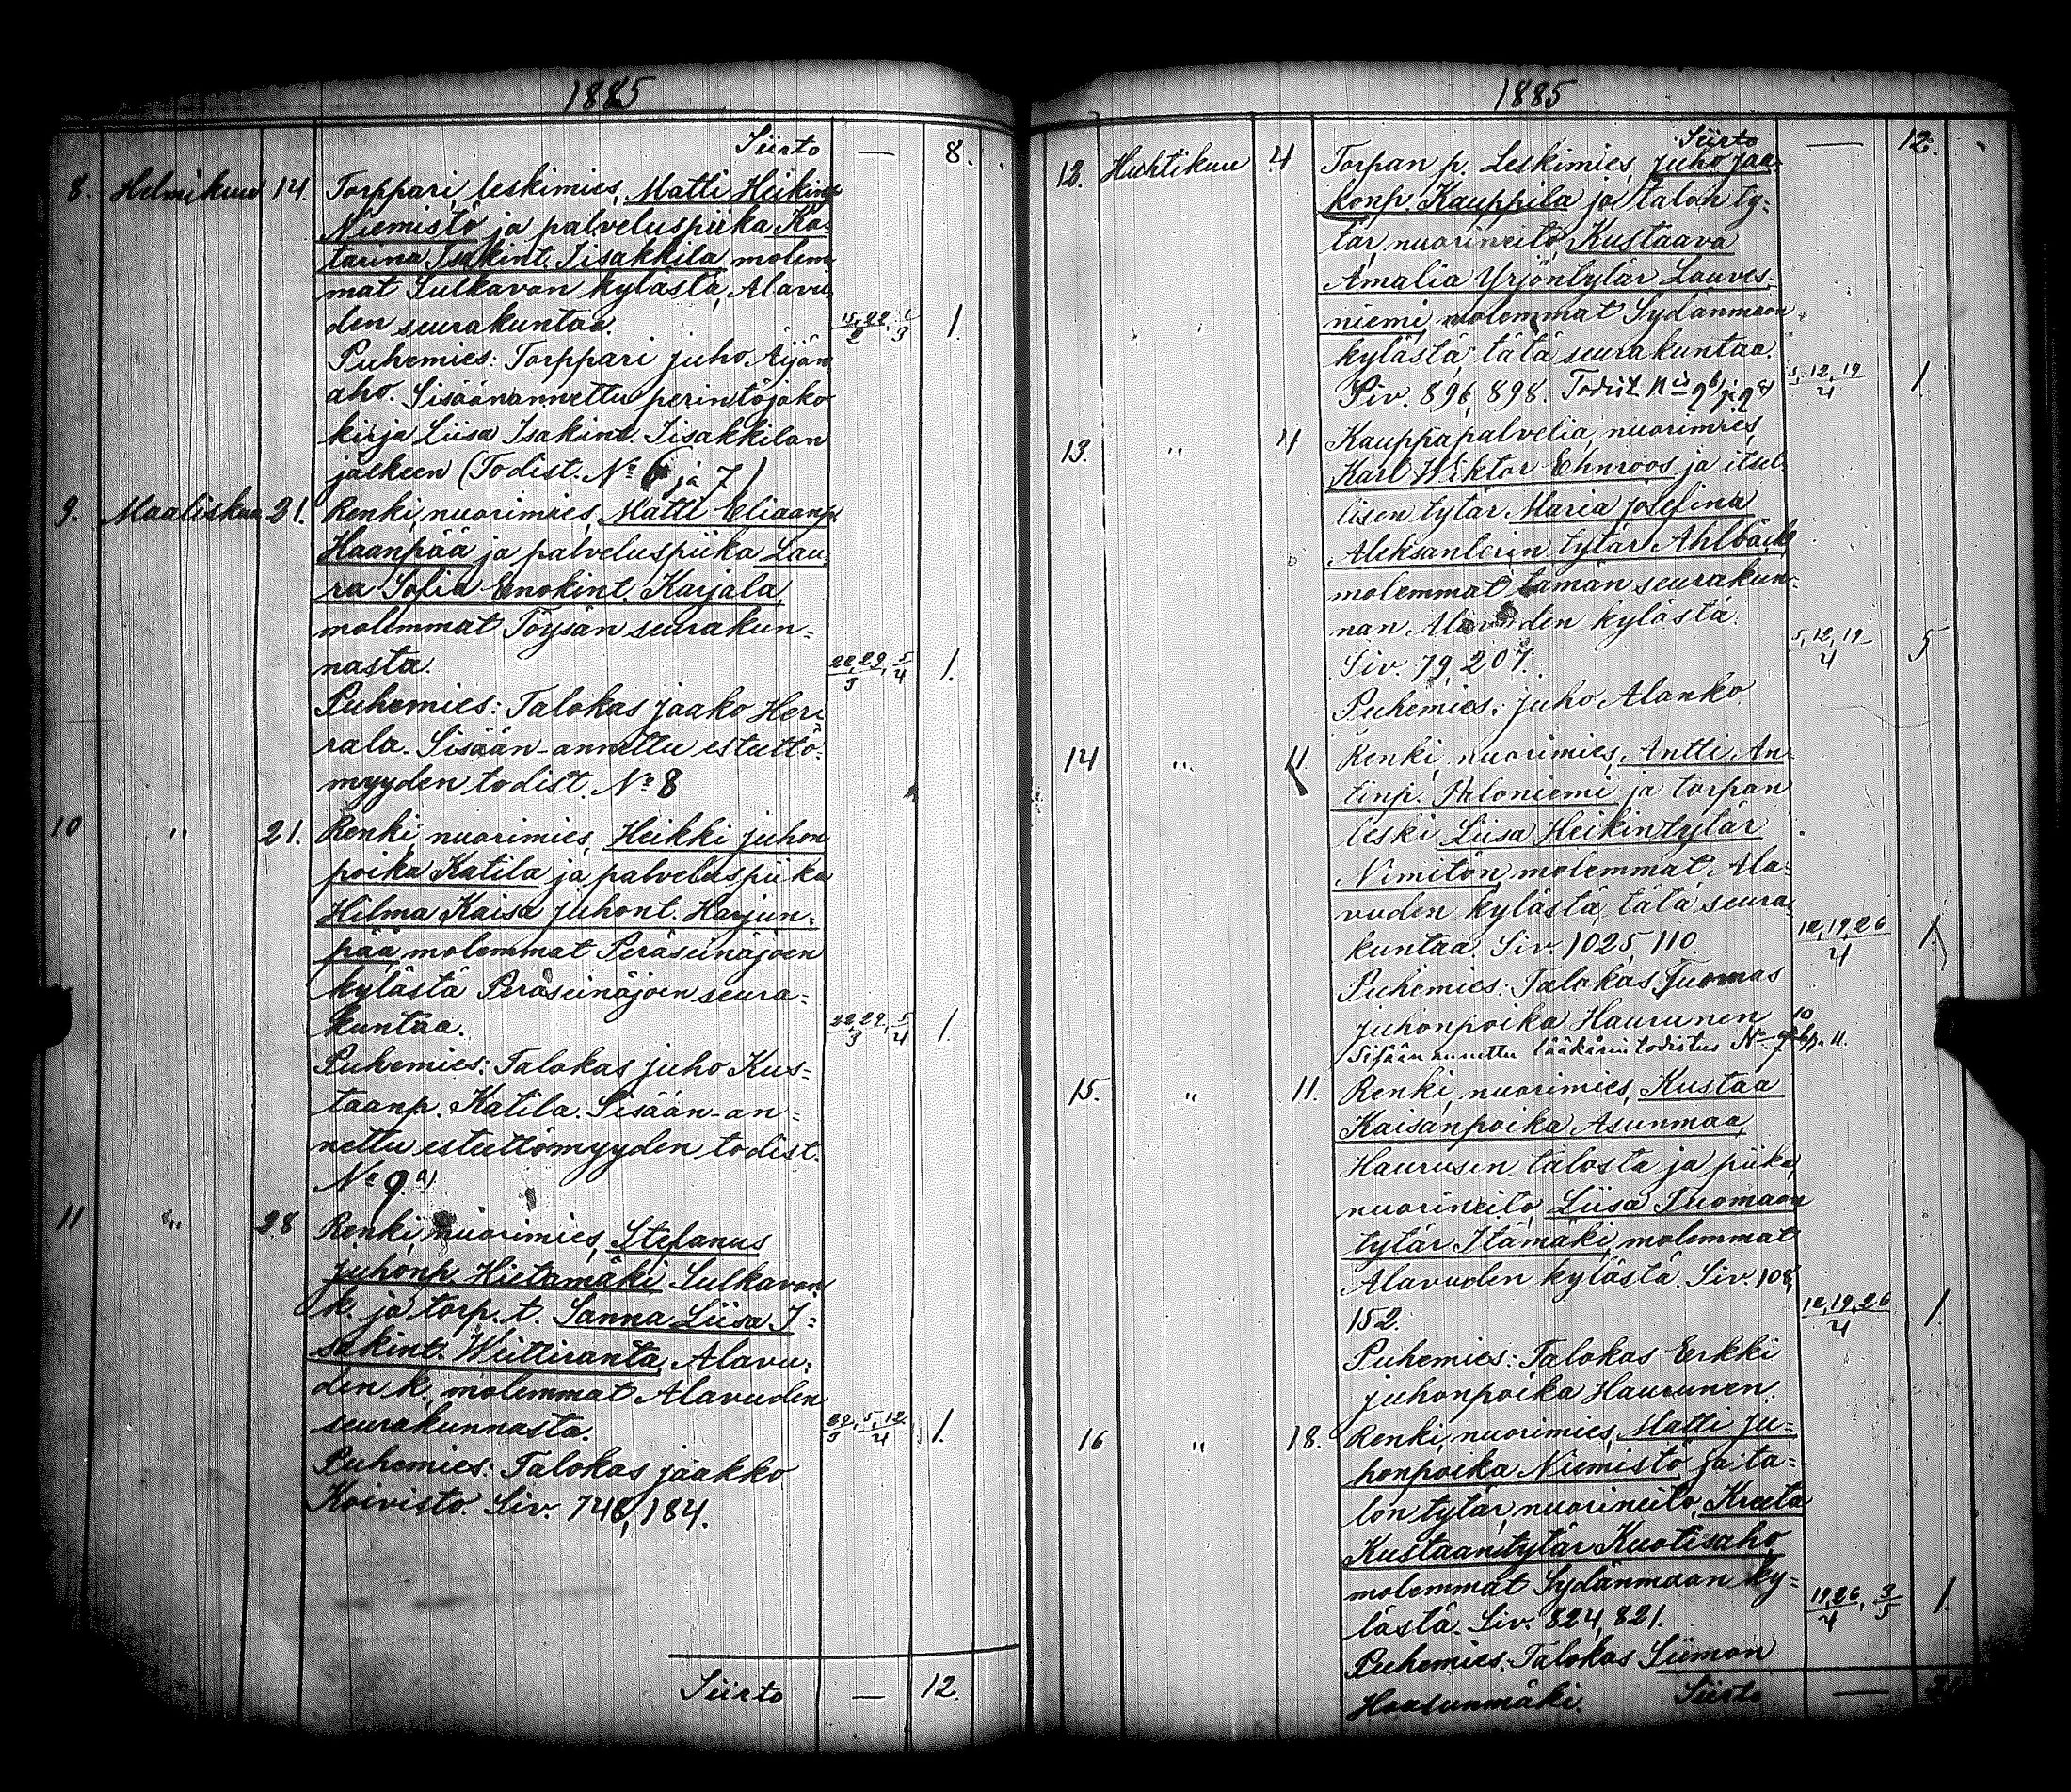 1885
Siirto — 8.
8. Helmikuu 14. Torppari, leskimies, Matti Heikinp.
Niemistö ja palveluspiika Ka-
tarina Isakint. Iisakkila molem-
mat Sulkavan kylästä, Alavu-
den seurakuntaa. 15, 22/2, 1/3 1.
Puhemies: Torppari Juho Äijän-
aho. Sisäänannettu perintöjako
kirja Liisa Isakint. Iisakkilan
jälkeen (Todist. No 6 ja 7)
9. Maaliskuu 21. Renki, nuorimies, Matti Eliaanp.
Haanpää ja palveluspiika Lau-
ra Sofia Enokint. Karjala,
molemmat Töysän seurakun-
nasta. 22, 29/3, 5/4 1.
Puhemies: Talokas Jaako Her-
rala. Sisään-annettu estettö-
myyden todist. No 8
10 " 21. Renki, nuorimies, Heikki Juhon
poika Katila ja palveluspiika
Hilma Kaisa Juhont. Harjun-
pää, molemmat Peräseinäjoen
kylästä Peräseinäjoen seura-
kuntaa. 22, 29/3, 5/4 1.
Puhemies: Talokas Juho Kus-
taanp. Katila. Sisään-an-
nettu estettömyyden todist.
No 9.a)
11 " 28 Renki, nuorimies, Stefanus
Juhonp. Hietamäki Sulkavan
k. ja torp. t. Sanna Liisa I-
sakint. Wiitiranta, Alavu-
den k. molemmat Alavuden
seurakunnasta. 29/3, 5, 12/4 1.
Puhemies: Talokas Jaakko
Koivisto. Siv. 748, 184.
Siirto — 12.
1885
Siirto — 12.
12. Huhtikuu 4 Torpan p. Leskimies, Juho Jaa-
konp. Kauppila ja talon ty-
tär, nuorineito, Kustaava
Amalia Yrjöntytär Lauves-
niemi, molemmat Sydänmaan
kylästä, tätä seurakuntaa.
Siv. 896, 898. Todist. No 9b) ja 9c) 5, 12, 19/4 1.
13. " 4 Kauppapalvelia, nuorimies,
Karl Wiktor Ehnroos ja itsel-
lisen tytär Maria Josefina
Aleksanterin tytär Ahlbäck,
molemmat tämän seurakun-
nan Alavuden kylästä.
Siv. 79, 207. 5, 12, 19/4 5
Puhemies: Juho Alanko.
14 " 11. Renki, nuorimies, Antti An-
tinp. Paloniemi ja torpan
leski Liisa Heikintytär
Nimitön, molemmat Ala-
vuden kylästä, tätä seura-
kuntaa. Siv. 1025, 110. 12, 19, 26/4 1
Puhemies: Talokas Tuomas
Juhonpoika Haurunen
Sisään annettu lääkärin todistus No 10 ja 11.
15. " 11. Renki, nuorimies, Kustaa
Kaisanpoika Asunmaa,
Haurusen talosta ja piika,
nuorineito, Liisa Tuomaan
tytär Itämäki, molemmat
Alavuden kylästä. Siv. 108,
152. 12, 19, 26/4 1.
Puhemies: Talokas Erkki
Juhonpoika Haurunen.
16 " 18. Renki, nuorimies, Matti Ju-
honpoika Niemistö ja ta-
lon tytär, nuorineito, Kreeta
Kustaantytär Kuotisaho,
molemmat Sydänmaan ky-
lästä. Siv. 824, 821. 19, 26/4, 3/5 1.
Puhemies: Talokas Siimon
Haasunmäki. Siirto —